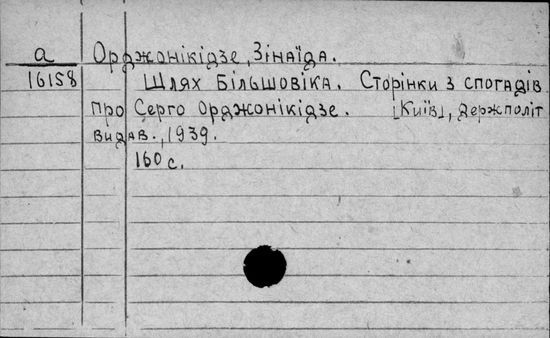 а
16158
Орджонікідзе, Зінаїда.
Шлях Більшовіка. Сторінки з спогадів
про Серго Орджонікідзе. [Київ], Держполіт
видав., 1939.
160 с.